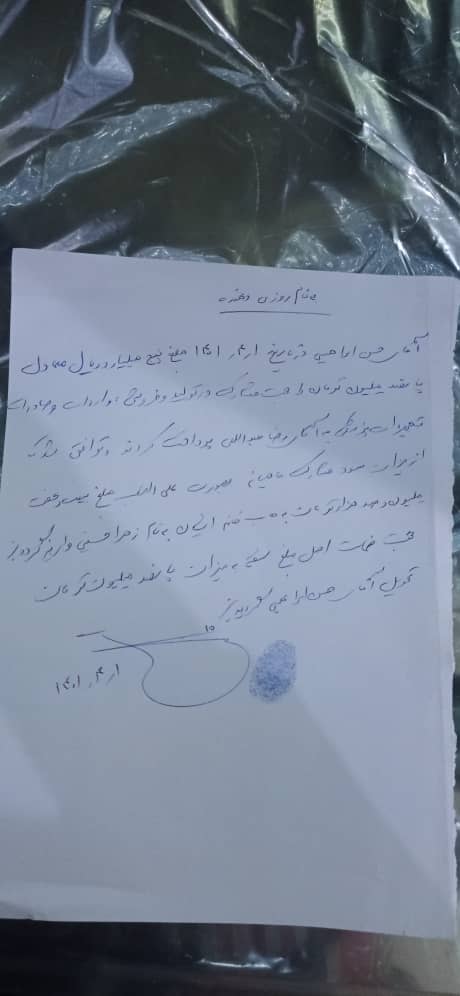 بنام روزی دهنده
آقای حسن ابراهیمی در تاریخ ۱۴۰۱/۰۴/۰۱ مبلغ پنج میلیارد ریال معادل
پانصد میلیون تومان را جهت مشارکت در تولید و فروش و واردات و صادرات
تجهیزات پزشکی به آقای رضا عبداللهی پرداخت کردند و توافق شد که
از بابت سود مشارکت ماهیانه بصورت علی الحساب مبلغ بیست و هفت
میلیون و صد هزار تومان به حساب خانم ایشان به نام زهرا حسنی واریز گردد و نیز
جهت ضمانت اصل مبلغ سفته به میزان پانصد میلیون تومان
تحویل آقای حسن ابراهیمی گردید
۱۴۰۱/۰۴/۰۱